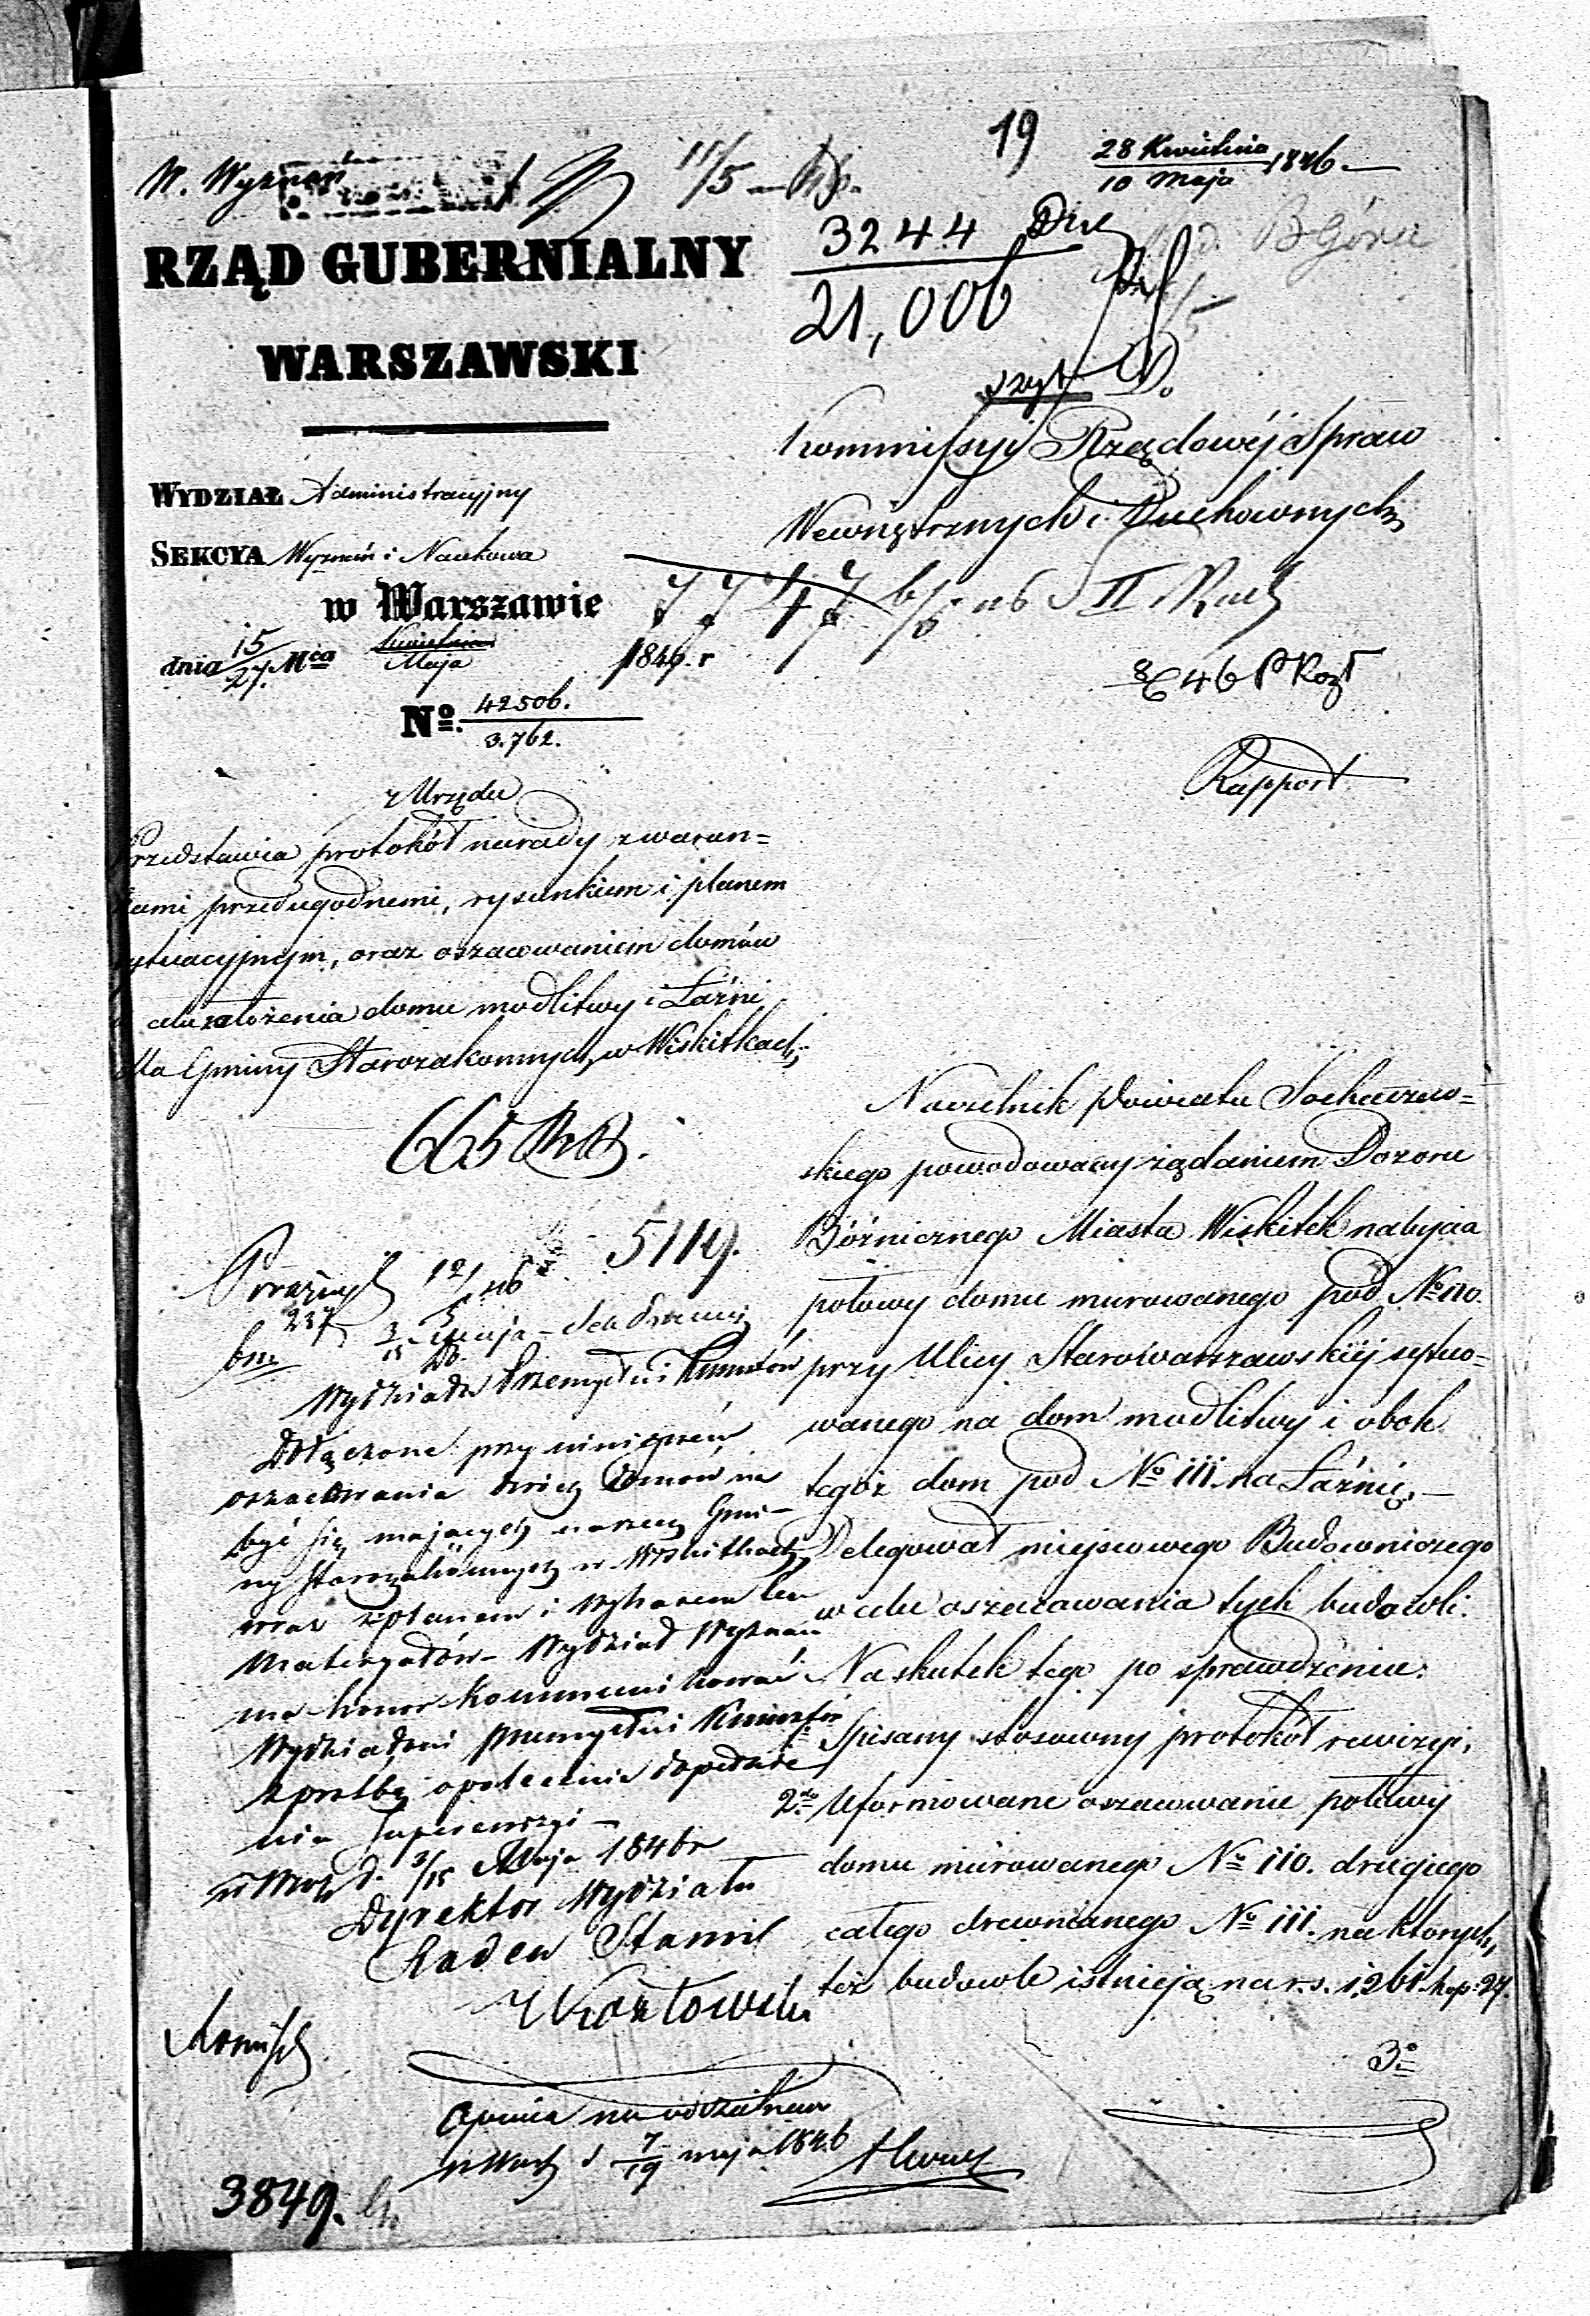 19
28 Kwietnia
10 Maja 1846
W. Wyznań
11/5
3244
21,006
RZĄD GUBERNIALNY
WARSZAWSKI
Do
Kommissyi Rządowéj Spraw
Wewnętrznych i Duchownych
WYDZIAŁ Administracyjny
SEKCYA Wyznań i Naukowa
w Warszawie
dnia 15/27 Mca Kwietnia Maja 1846. r
7747 6/6 46 II
8/6 46
No. 42506.
3.762.
Rapport
z Urzędu
Przedstawia protokół narady z warun=
kami przedugodnemi, rysunkiem i planem
sytuacyjnym, oraz oszacowaniem domów
w celu założenia domu modlitwy i Łaźni
dla Gminy Starozakonnych w Wiskitkach,
665
Naczelnik Powiatu Sochaczew=
skiego powodowany żądaniem Dozoru
Bóżnicznego Miasta Wiskitek nabycia
połowy domu murowanego pod No 110.
przy Ulicy Starowarszawskiéj sytuo=
wanego na dom modlitwy i obok
tegoż dom pod No 111. na Łaźnię,—
Delegował miejscowego Budowniczego
w celu oszacowania tych budowli.
Na skutek tego po sprawdzeniu:
Spisany stosowny protokół rewizyi,
2do Uformowane oszacowanie połowy
domu murowanego No 110. drugiego
całego drewnianego No 111. na których
też budowle istnieją na r.s. 1,261 kop: 27.
3o
5119.
237
Wydziału Przemysłu i Kunsztów
Dołączone przy niniejszem
oszacowania dwóch domów na
być się mających na rzecz Gmi-
ny Starozakonnych w Wiskitkach
wraz z planem i wykazem cen
Materyałów - Wydział Wyznań
ma honor kommunikować
Wydziałowi Przemysłu i Kunsztów
z prośbą o polecenie dopełnie
nia superrewizyi —
d. 3/15 Maja 1846 r
Dyrektor Wydziału
Radca Stanu
Kozłowski
Opinia na oddzielnem
w Warsz d 7/19 maja 1846
3849.